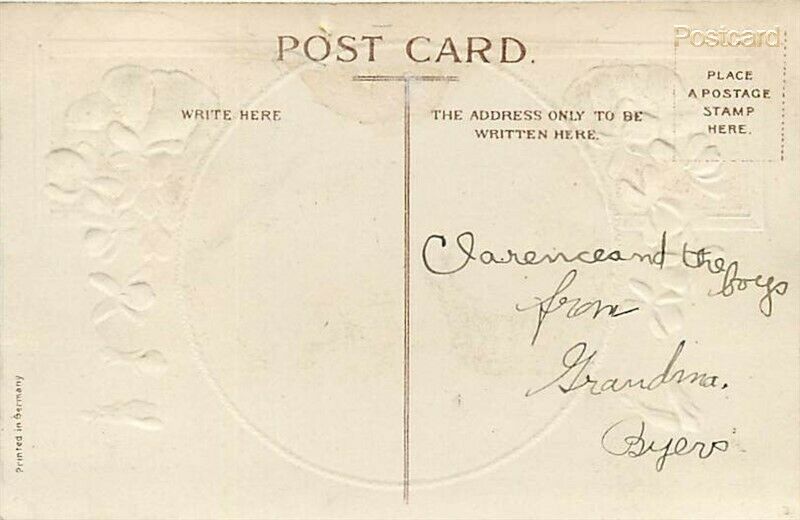 POST CARD.
Postcard
PLACE
A POSTAGE
STAMP
HERE.
WRITE HERE
THE ADDRESS ONLY TO BE
WRITTEN HERE.
Clarence and the
boys
from
Grandma.
Byers
Printed in Germany